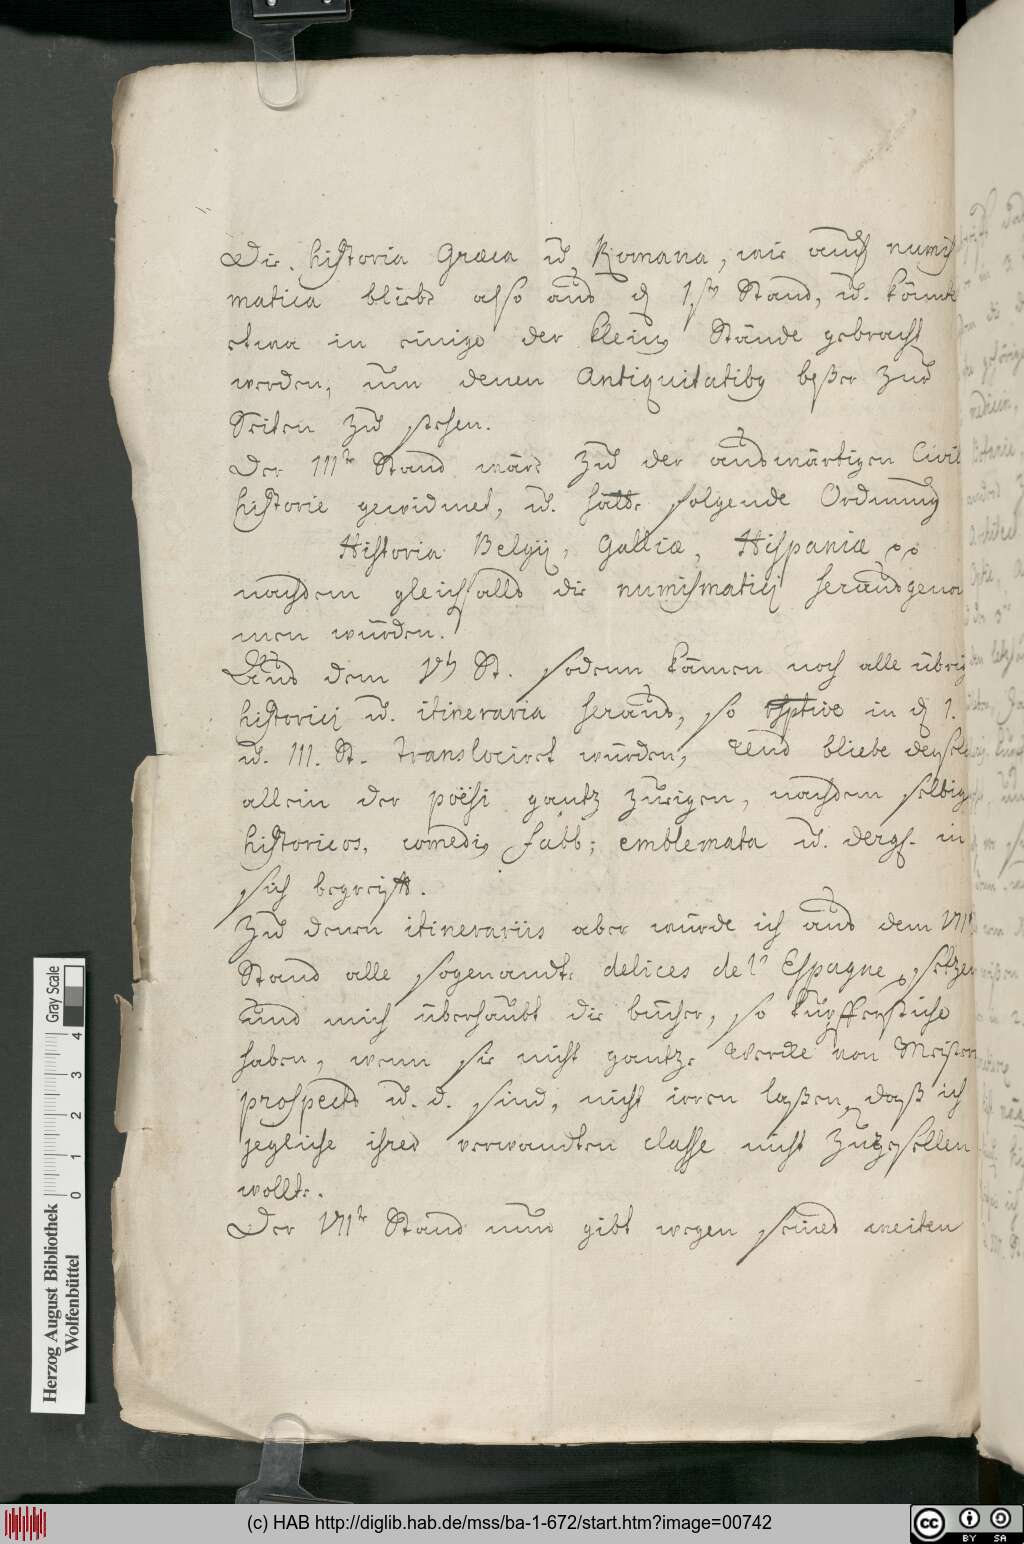 Die historia Græca u. Romana, wie auch numis
matica bliebe also aus d 1st Stand, u. könnte
etwa in einige der kleinen Stände gebracht
werden, um denen Antiquitatibus beßer zur
Seiten zu stehen.
Der IIIte Stand wäre zu der auswärtigen Civil
historie gewidmet, u. hätte folgende Ordnung
Historia Belgij, Galliæ, Hispaniæ
nachdem gleichfalls die numismatici herausgenom
men würden.
Aus dem V St. sodenn kämen noch alle übrige
historici u. itineraria heraus, so in d 1.
u. III. St. translociret würden, und bliebe derselbe
allein der poësi gantz zu eigen, nachdem selbige
historicos, comedias, fabb; emblemata u. dergl. in
sich begreifft.
Zu denen itinerariis aber würde ich aus dem VII
Stand alle sogenandte delices de l'Espagne setzen
und mich überhaubt die bücher, so Kupfferstiche
haben, wenn sie nicht gantze Wercke von Meistern
prospects u. d. sind, nicht irren laßen, daß ich
jegliche ihrer verwandten classe nicht zugesellen
wollte.
Der VIIte Stand nun gibt wegen seines weiten
Herzog August Bibliothek
Wolfenbüttel
0 1 2 3 4
Gray Scale
(c) HAB http://diglib.hab.de/mss/ba-1-672/start.htm?image=00742
cc BY SA